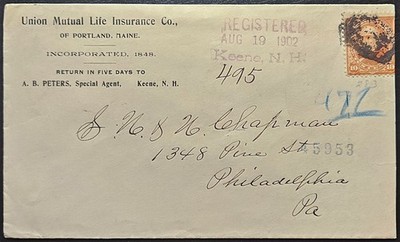 Union Mutual Life Insurance Co.,
OF PORTLAND, MAINE.
INCORPORATED, 1848.
RETURN IN FIVE DAYS TO
A. B. PETERS, Special Agent, Keene, N. H.
REGISTERED
AUG 19 1902
Keene, N. H.
495
10 10
472
S. N. & N. Chapman
1348 Pine St
45953
Philadelphia
Pa